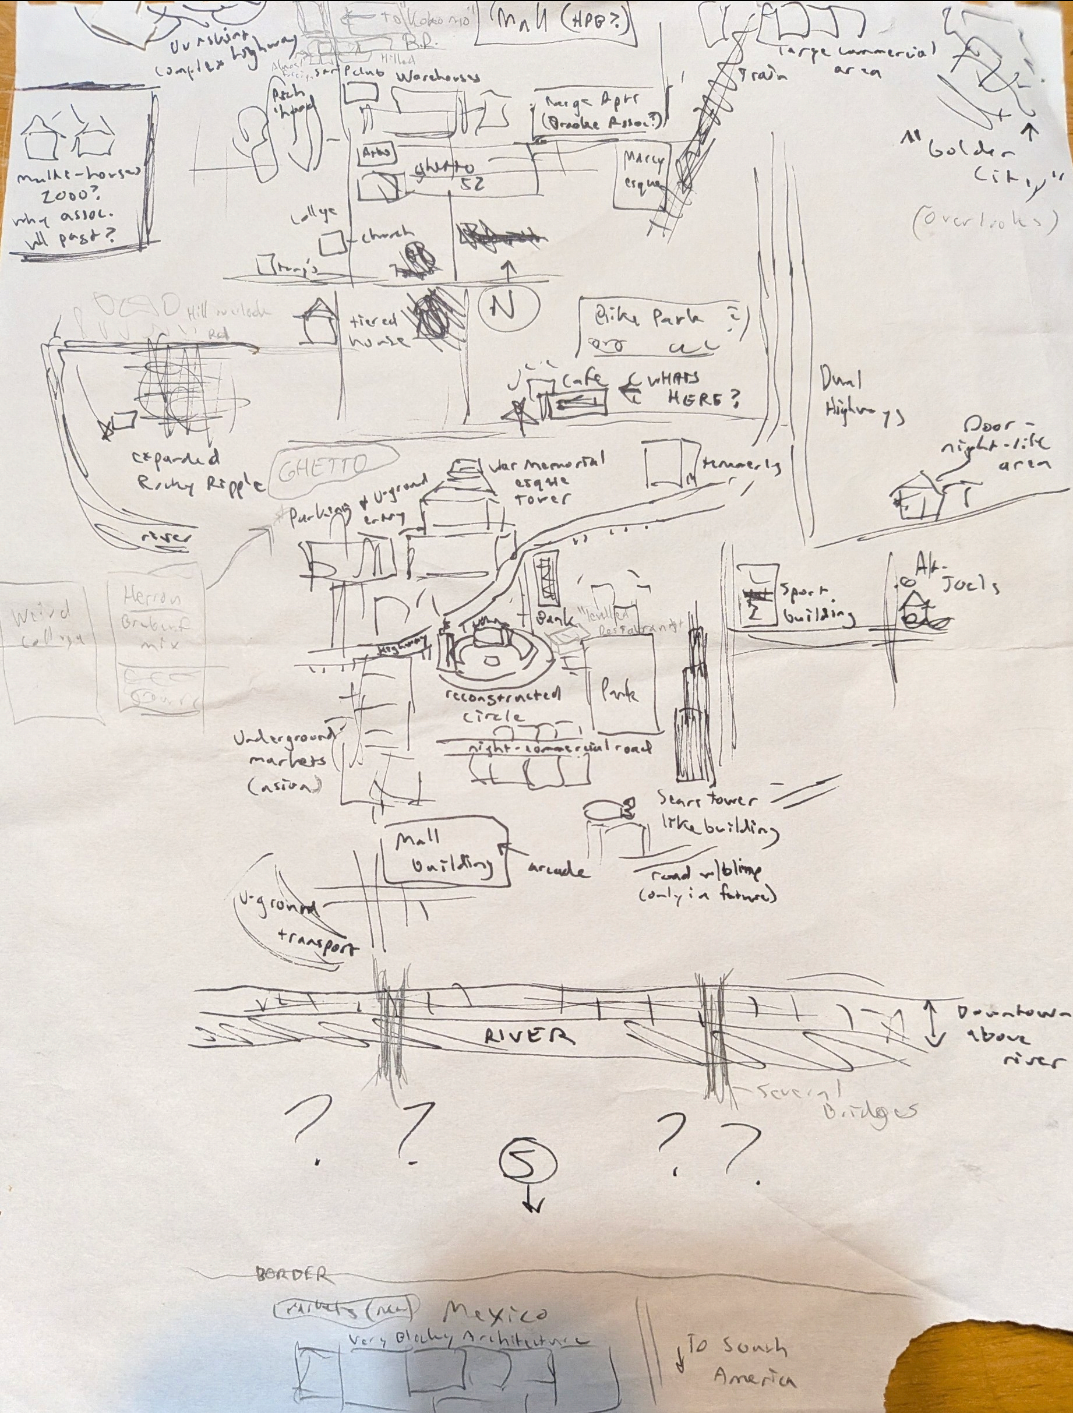 to "Kokomo"
B.R.
Mall (HPG?)
complex highway
large commercial
area
Train
"Golden
City"
(overlooks)
Warehouses
Large Apts
(Brooke Assoc?)
Marcy
esque
Ghetto
52
multi-houses
2000?
why assoc.
w/ past?
College
church
N
tiered
house
Bike Park?
Cafe
WHATS
HERE?
Dual
Highways
Door -
night-life
area
expanded
Rocky Ripple
river
GHETTO
Parking & U-ground
entry
War Memorial
esque
tower
Weird
college
Herron
mix
Bank
Highway
reconstructed
circle
Park
night-commercial road
Sport.
building
Alt-
Joe's
Underground
markets
(asian)
Sears tower
like building
Mall
building
arcade
road w/ blimp
(only in future)
U-ground
transport
RIVER
Downtown
above
river
Several
Bridges
? ? ? ?
S
BORDER
markets (new)
Mexico
Very Blocky Architecture
To South
America